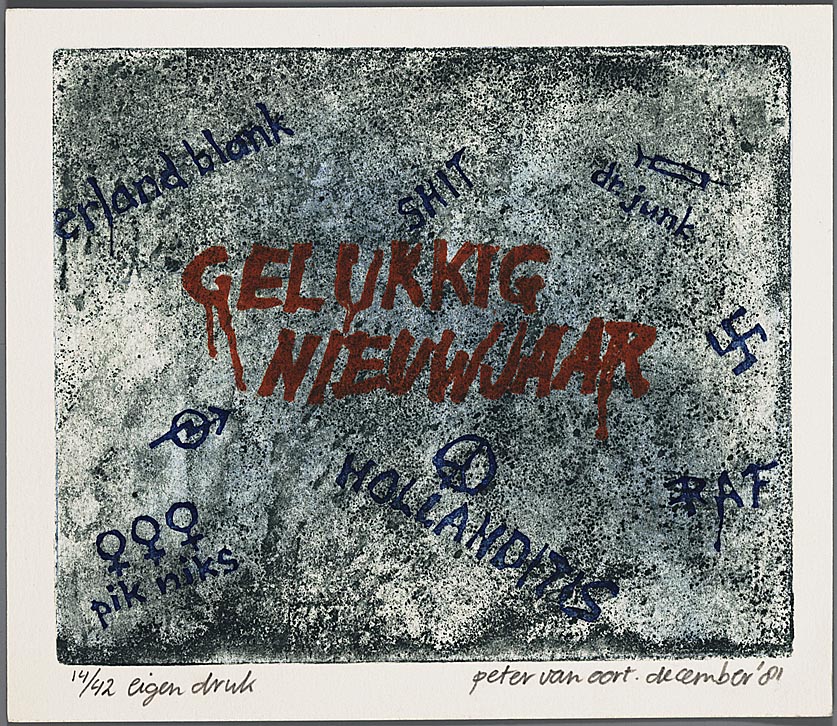 erland blank
SHIT
dr. junk
GELUKKIG
NIEUWJAAR
HOLLANDITIS
RAF
pik niks
14/42 eigen druk
peter van oort. december '81